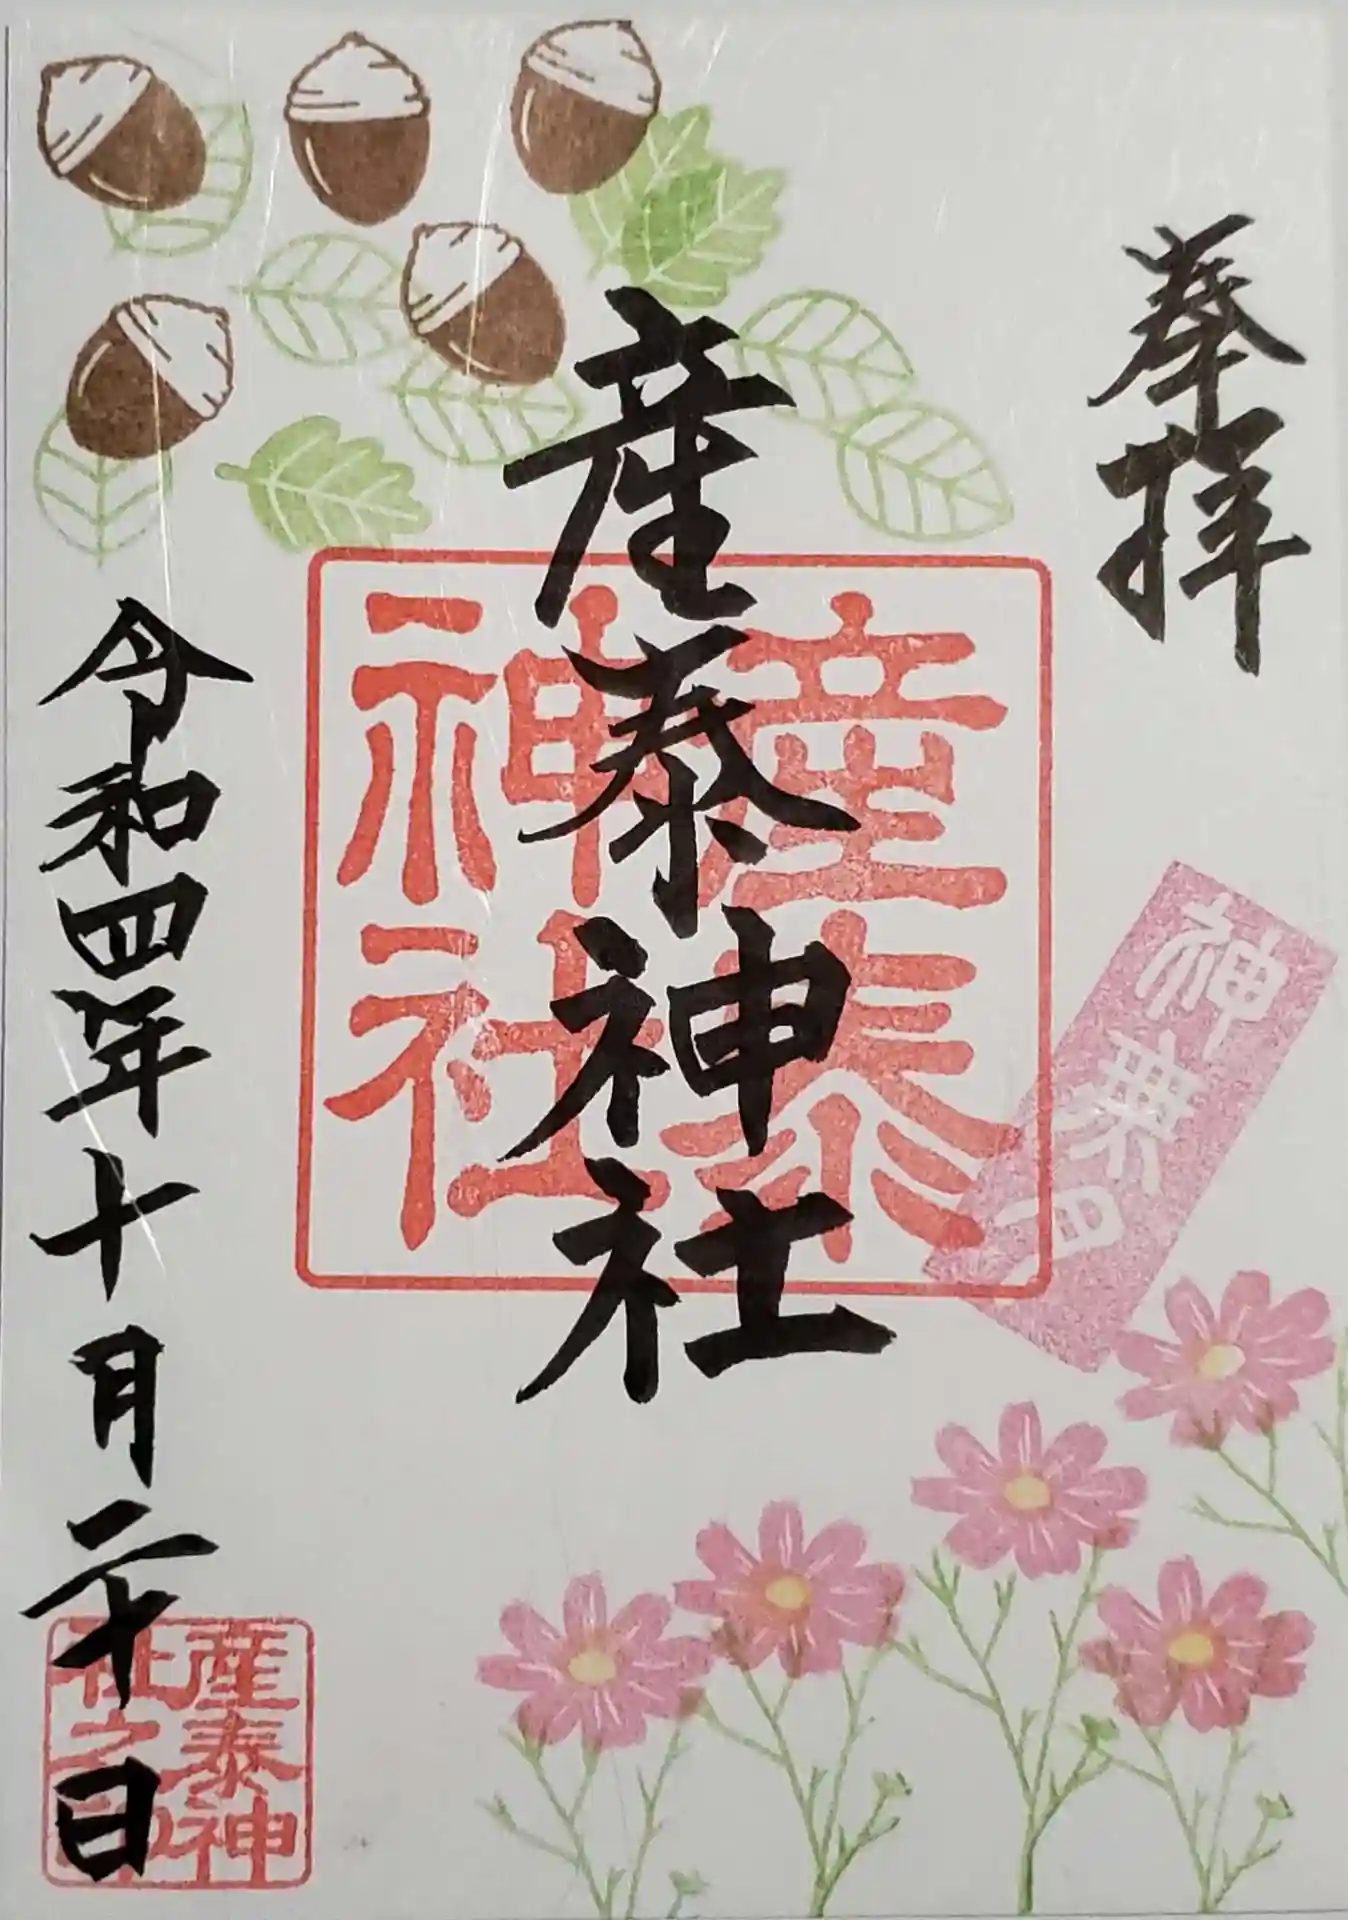 奉拝
神乗日
産泰神社
産泰
神社
令和四年十月二十日
産泰神
社之印